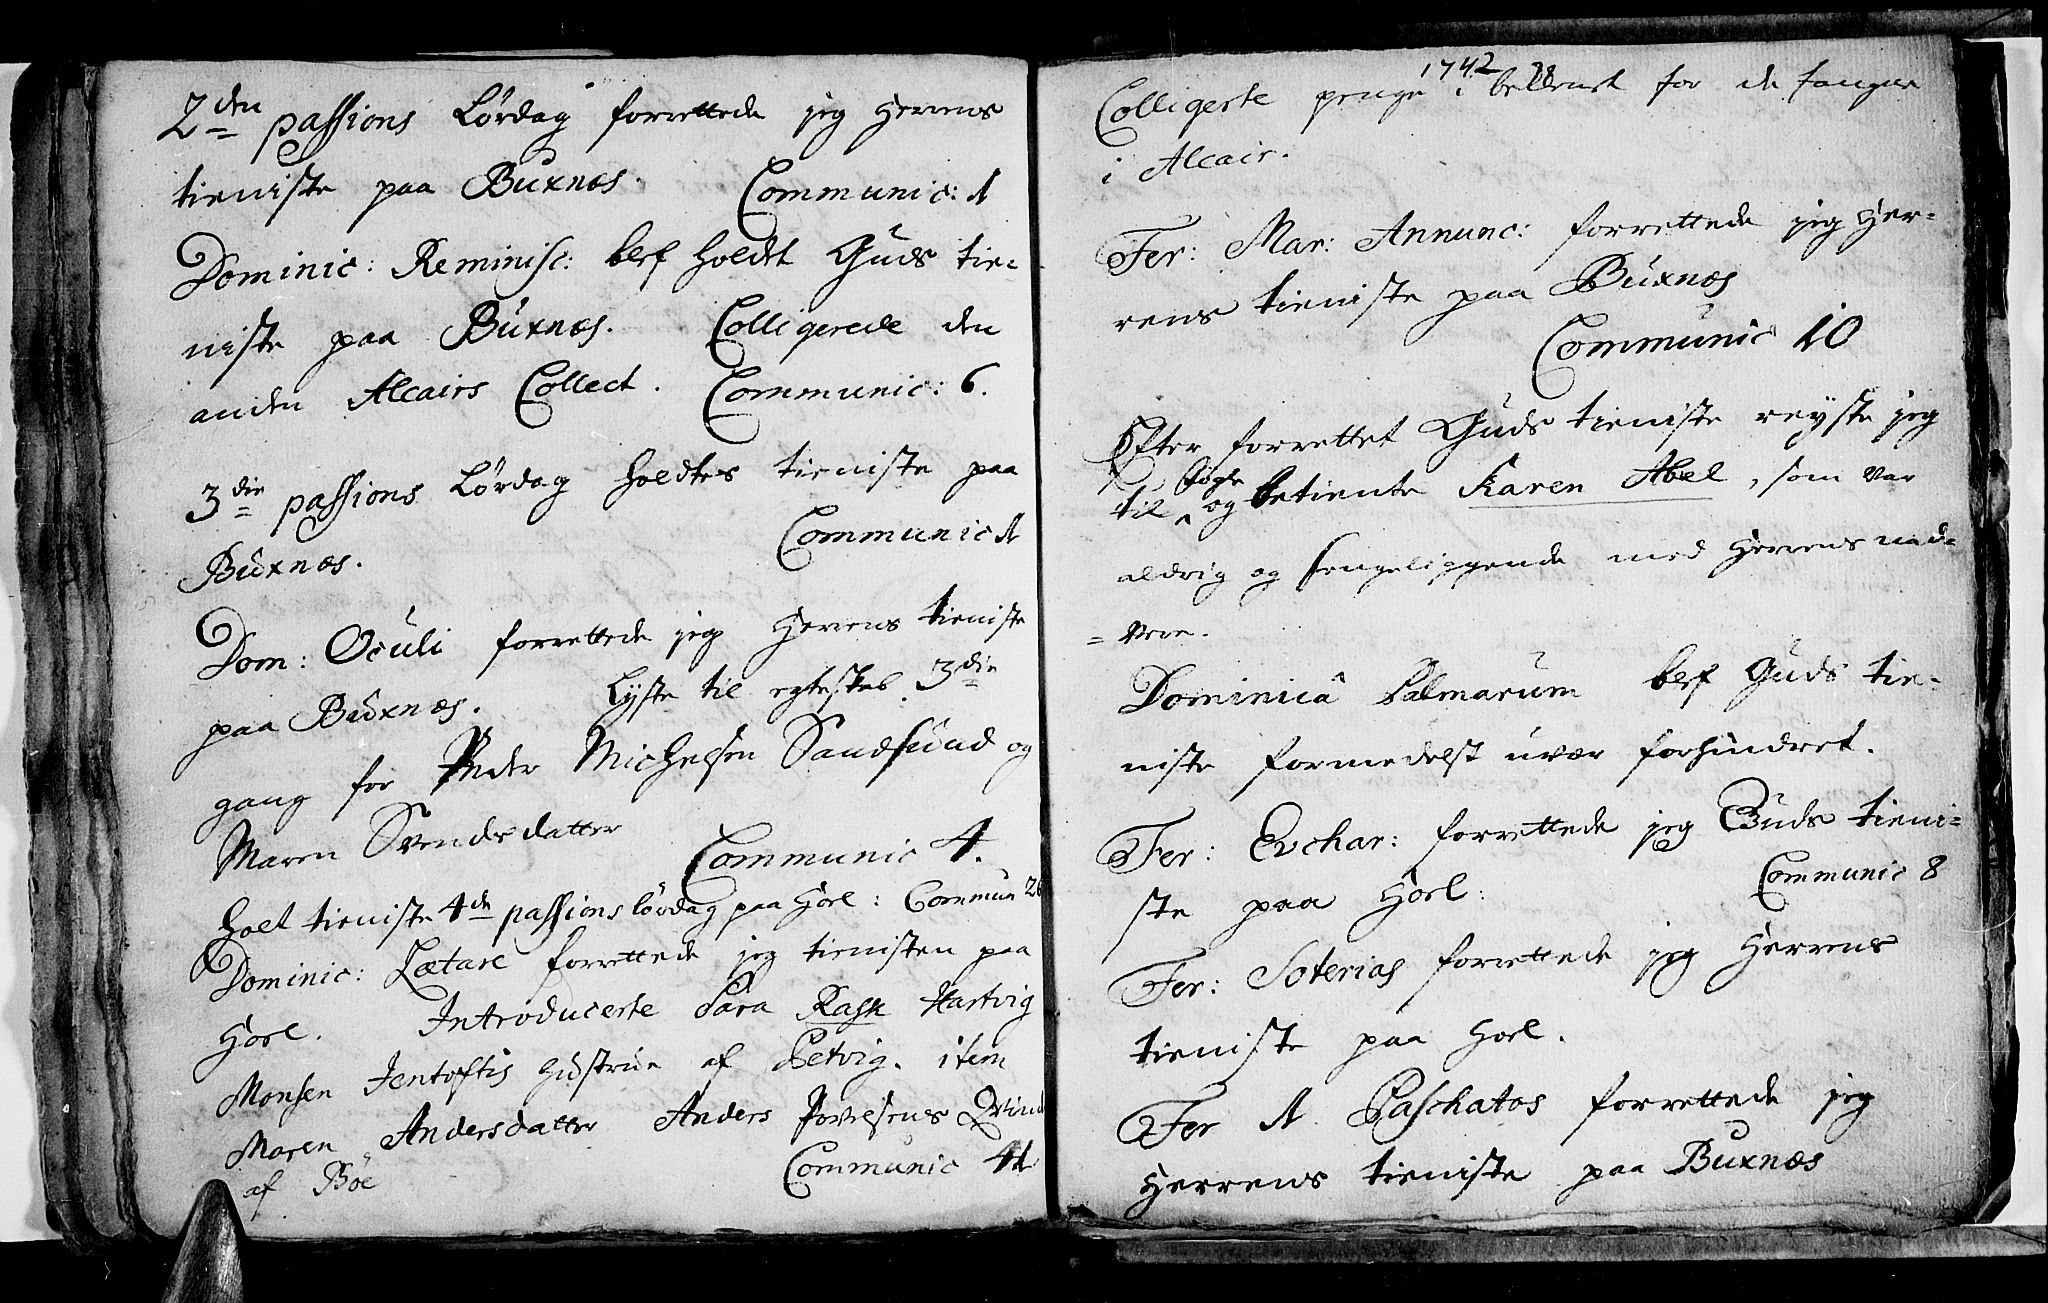 2den passions Lørdag forrettede jeg Herrens
tieniste paa Buxnæs. Communic: 1
Dominic: Reminisc: blef holdt Guds tie-
niste paa Buxnæs. Colligerede den
anden Alcairs Collect. Communic: 6.
3die passions Lørdag holdtes tieniste paa
Buxnæs. Communic 1
Dom: Oculi forrettede jeg Herrens tieniste
paa Buxnæs. Lyste til egteskab 3die
gang for Peder Michelsen Sandsund og
Maren Svendsdatter
Communic 4.
holt tieniste 4de passions lørdag paa Hørl: Commun 26
Dominic: Lætare forrettede jeg tienisten paa
Hørl. Introducerte Sara Rask Hartvig
Monsen Jentoftis hustrue af Petvig. item
Maren Andersdatter Anders Povelsens Qvinde
af Böe Communic 41
1742 88
Colligerte penge i for de fangne
i Alcair.
Fer: Mar: Annunc: forrettede jeg Her-
rens tieniste paa Buxnæs
Communic 10
Efter forrettet Guds tieniste reyste jeg
til og betiente Karen Abel, som var
aldrig og sengeliggende med Herrens nad-
= vere.
Dominicâ Palmarum blef Guds tie-
niste formedelst uvær forhindret.
Fer: Evchar: forrettede jeg Guds tieni-
ste paa Hørl: Communic 8
Fer: Soterias forrettede jeg Herrens
tieniste paa Hörl.
Fer 1 Paschatos forrettede jeg
Herrens tieniste paa Buxnæs